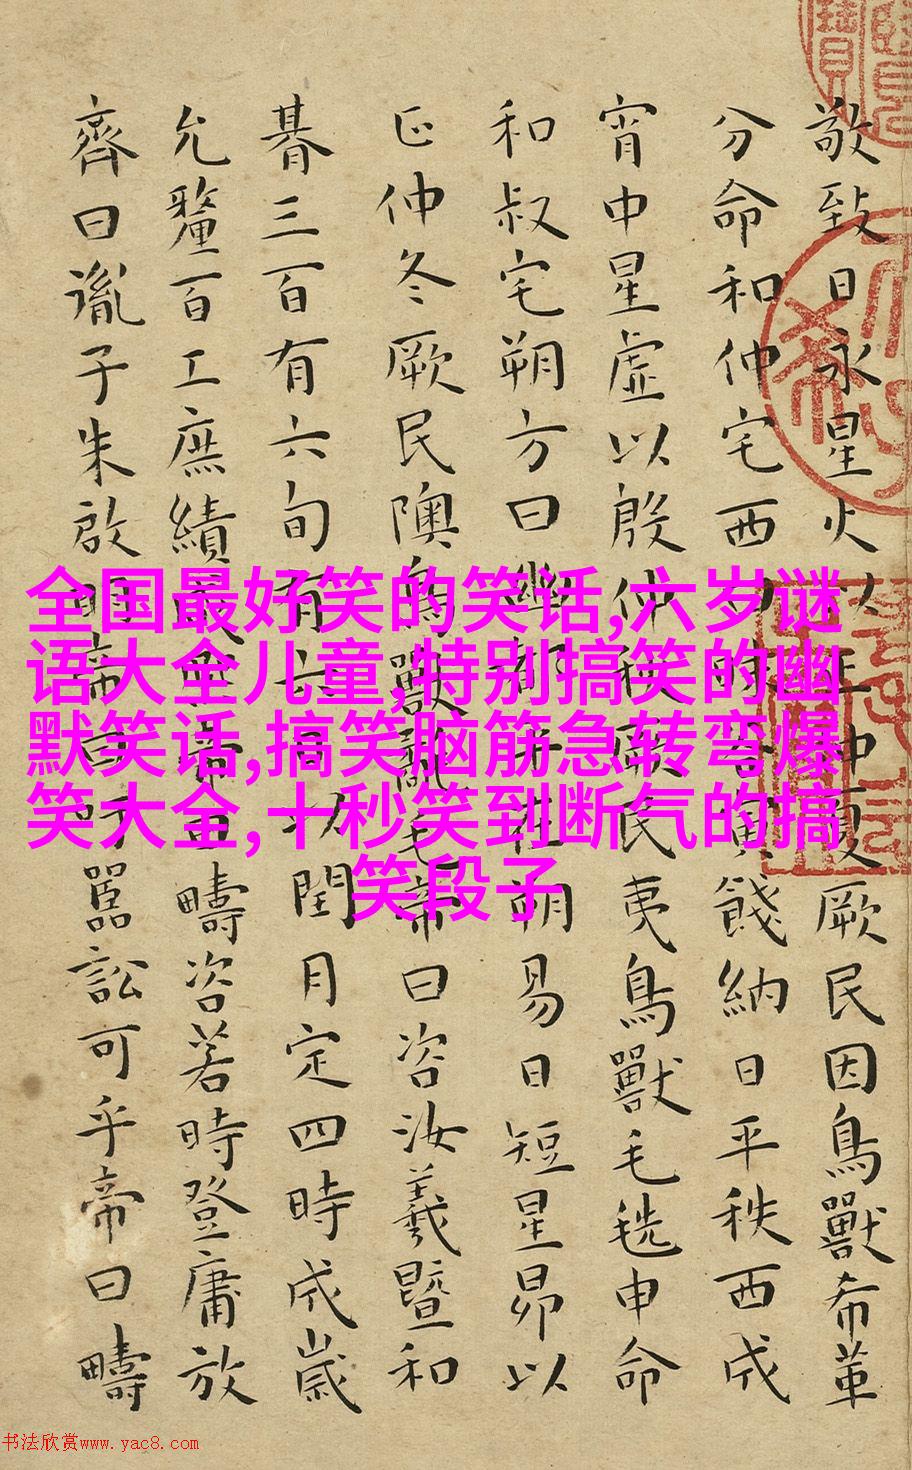 敬致日永星火以正仲夏厥民因鳥獸希革
分命和仲宅西曰昧谷寅餞納日平秩西成
宵中星虛以殷仲秋厥民夷鳥獸毛毨申命
和叔宅朔方曰幽都平在朔易日短星昴以
正仲冬厥民隩鳥獸氄毛帝曰咨汝羲暨和
朞三百有六旬有六日以閏月定四時成歲
允釐百工庶績咸熙帝曰疇咨若時登庸放
齊曰胤子朱啟明帝曰吁嚚訟可乎帝曰疇
全国最好笑的笑话,六岁谜
语大全儿童,特别搞笑的幽
默笑话,搞笑脑筋急转弯爆
笑大全,十秒笑到断气的搞
笑段子
书法欣赏www.yac8.com